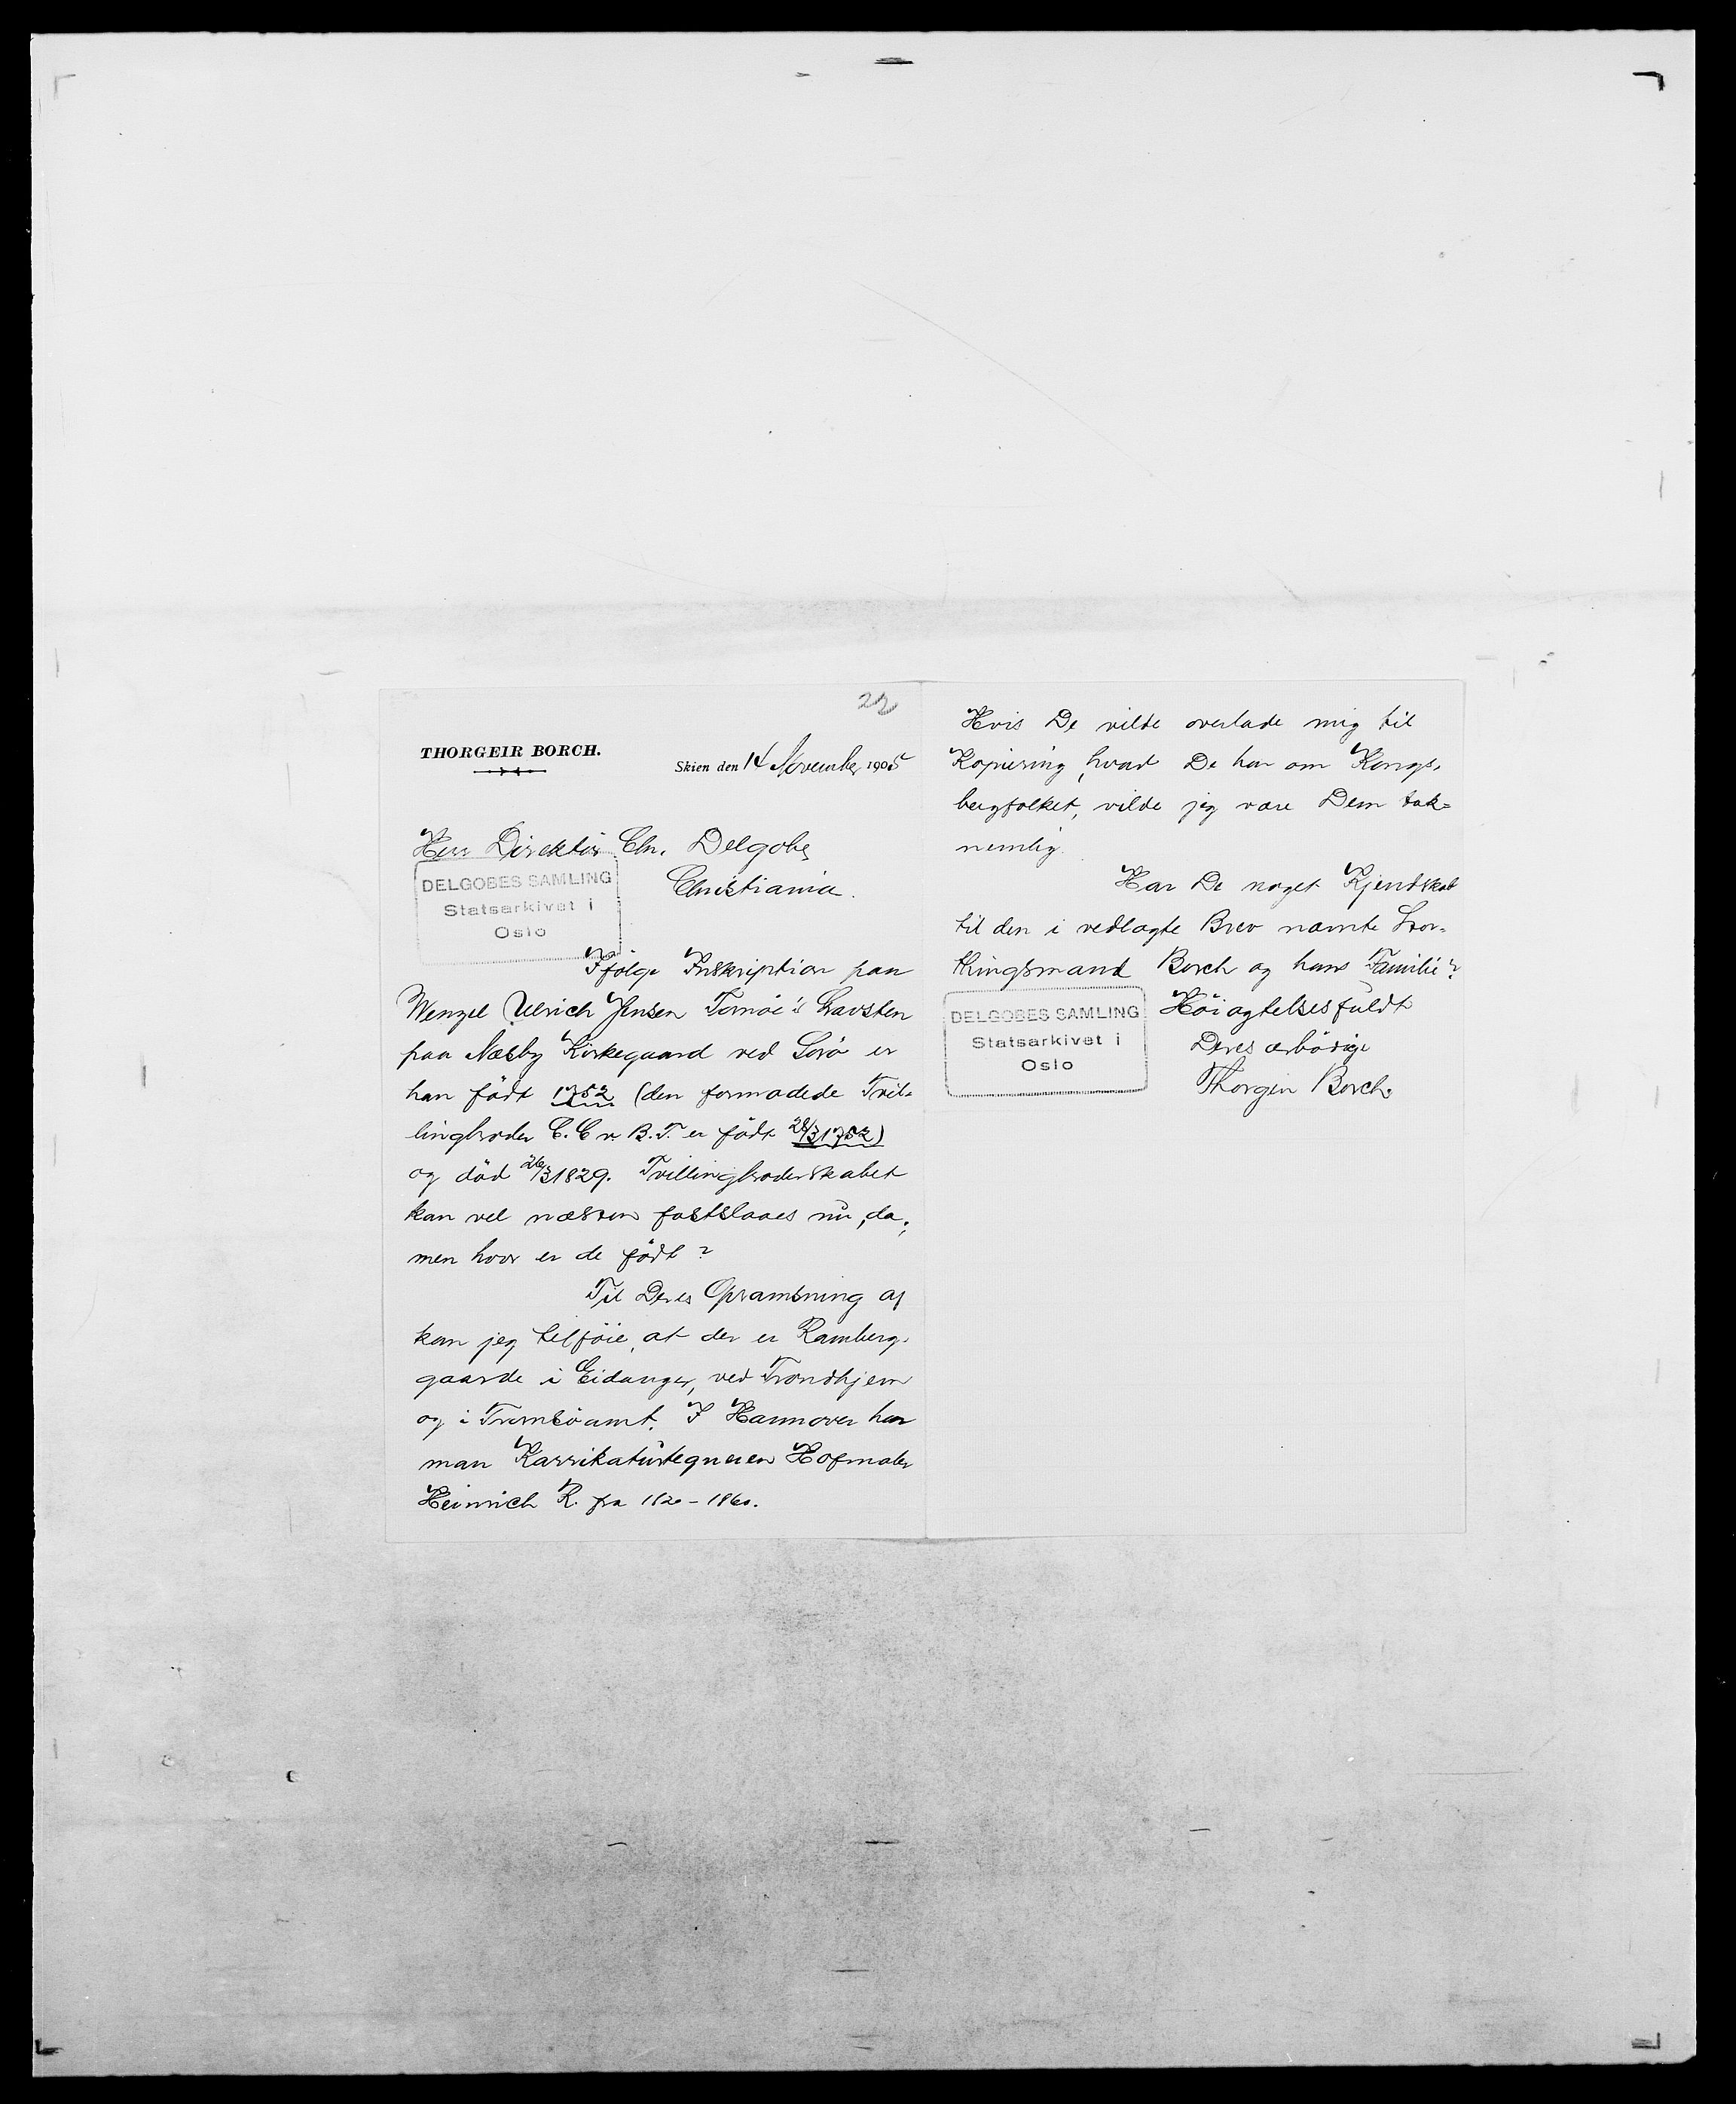 22
THORGEIR BORCH.
Skien den 14 November 1905
Herr Direktör Chr. Delgobe,
Christiania.
DELGOBES SAMLING
Statsarkivet i
Oslo
Ifölge Inskription paa
Wenzel Ulrich Jensen Tornöe's Gravsten
paa Næsby Kirkegaard ved Sorö er
han födt 1752 (den formodede Tvil-
lingbroder C. C v B. T. er födt 28/3 1752)
og död 26/3 1829. Tvillingbroderskabet
kan vel næsten fastslaaes nu, da;
men hvor er de födt?
Til Deres Opramsning af
kan jeg tilföie, at der er Ramberg-
gaarde i Eidanger, ved Trondhjem
og i Tromsöamt. I Hannover har
man Karrikaturtegneren Hofmaler
Heinrich R. fra 1820-1860.
Hvis De vilde overlade mig til
Kopiering, hvad De har om Kongs-
bergfolket, vilde jeg være Dem tak-
nemlig.
Har De noget Kjendskab
til den i vedlagte Brev nævnte Stor-
thingsmand Borch og hans Familie?
Höiagtelsesfuldt
Deres ærbödige
Thorgeir Borch.
DELGOBES SAMLING
Statsarkivet i
Oslo